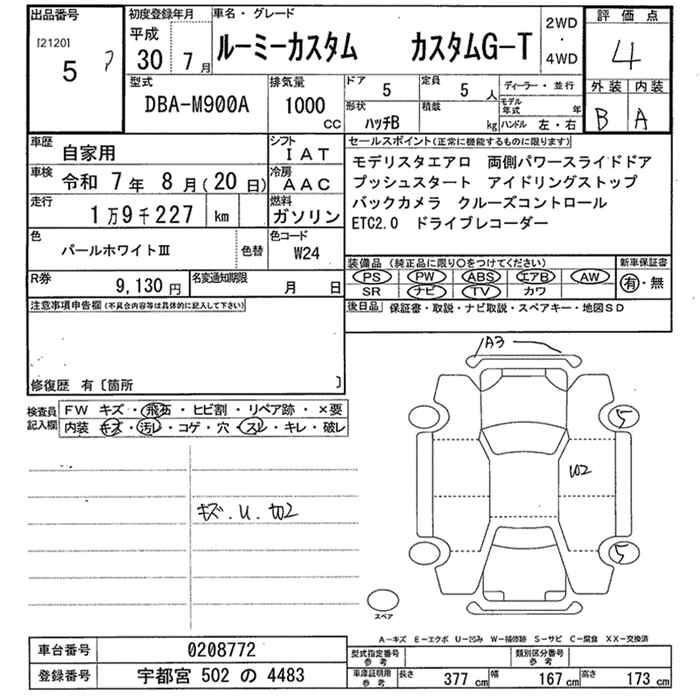 出品番号
[2120]
5 ア
初度登録年月
平成
30 7月
車名・グレード
ルーミーカスタム カスタムG-T
2WD
・
4WD
評価点
4
外装 内装
B A
型式
DBA-M900A
排気量
1000
cc
ドア
5
定員
5 人
形状
ハッチB
積載
kg
ディーラー・並行
モデル年式 年
ハンドル 左・右
車歴
自家用
シフト
IAT
車検
令和 7年 8月(20日)
冷房
AAC
走行
1万9千227 km
燃料
ガソリン
色
パールホワイトⅢ
色替
色コード
W24
R券
9,130円
名変通知期限
月 日
セールスポイント(正常に機能するものに限ります)
モデリスタエアロ 両側パワースライドドア
プッシュスタート アイドリングストップ
バックカメラ クルーズコントロール
ETC2.0 ドライブレコーダー
装備品(純正品に限り○をつけてください)
PS PW ABS エアB AW
SR ナビ TV カワ
新車保証書
有・無
後日品 保証書・取説・ナビ取説・スペアキー・地図SD
注意事項申告欄(不具合内容等は具体的に記入して下さい)
修復歴 有〔箇所 〕
検査員
記入欄
FW キズ・飛石・ヒビ割・リペア跡・×要
内装 キズ・汚レ・コゲ・穴・スレ・キレ・破レ
キズ.U.ヤ02
A3
5
U2
5
スペア
A-キズ E-エクボ U-凹み W-補修跡 S-サビ C-腐食 XX-交換済
車台番号 0208772
登録番号 宇都宮 502 の 4483
型式指定番号
参考
類別区分番号
参考
車庫証明用
参考
長さ 377 cm 幅 167 cm 高さ 173 cm